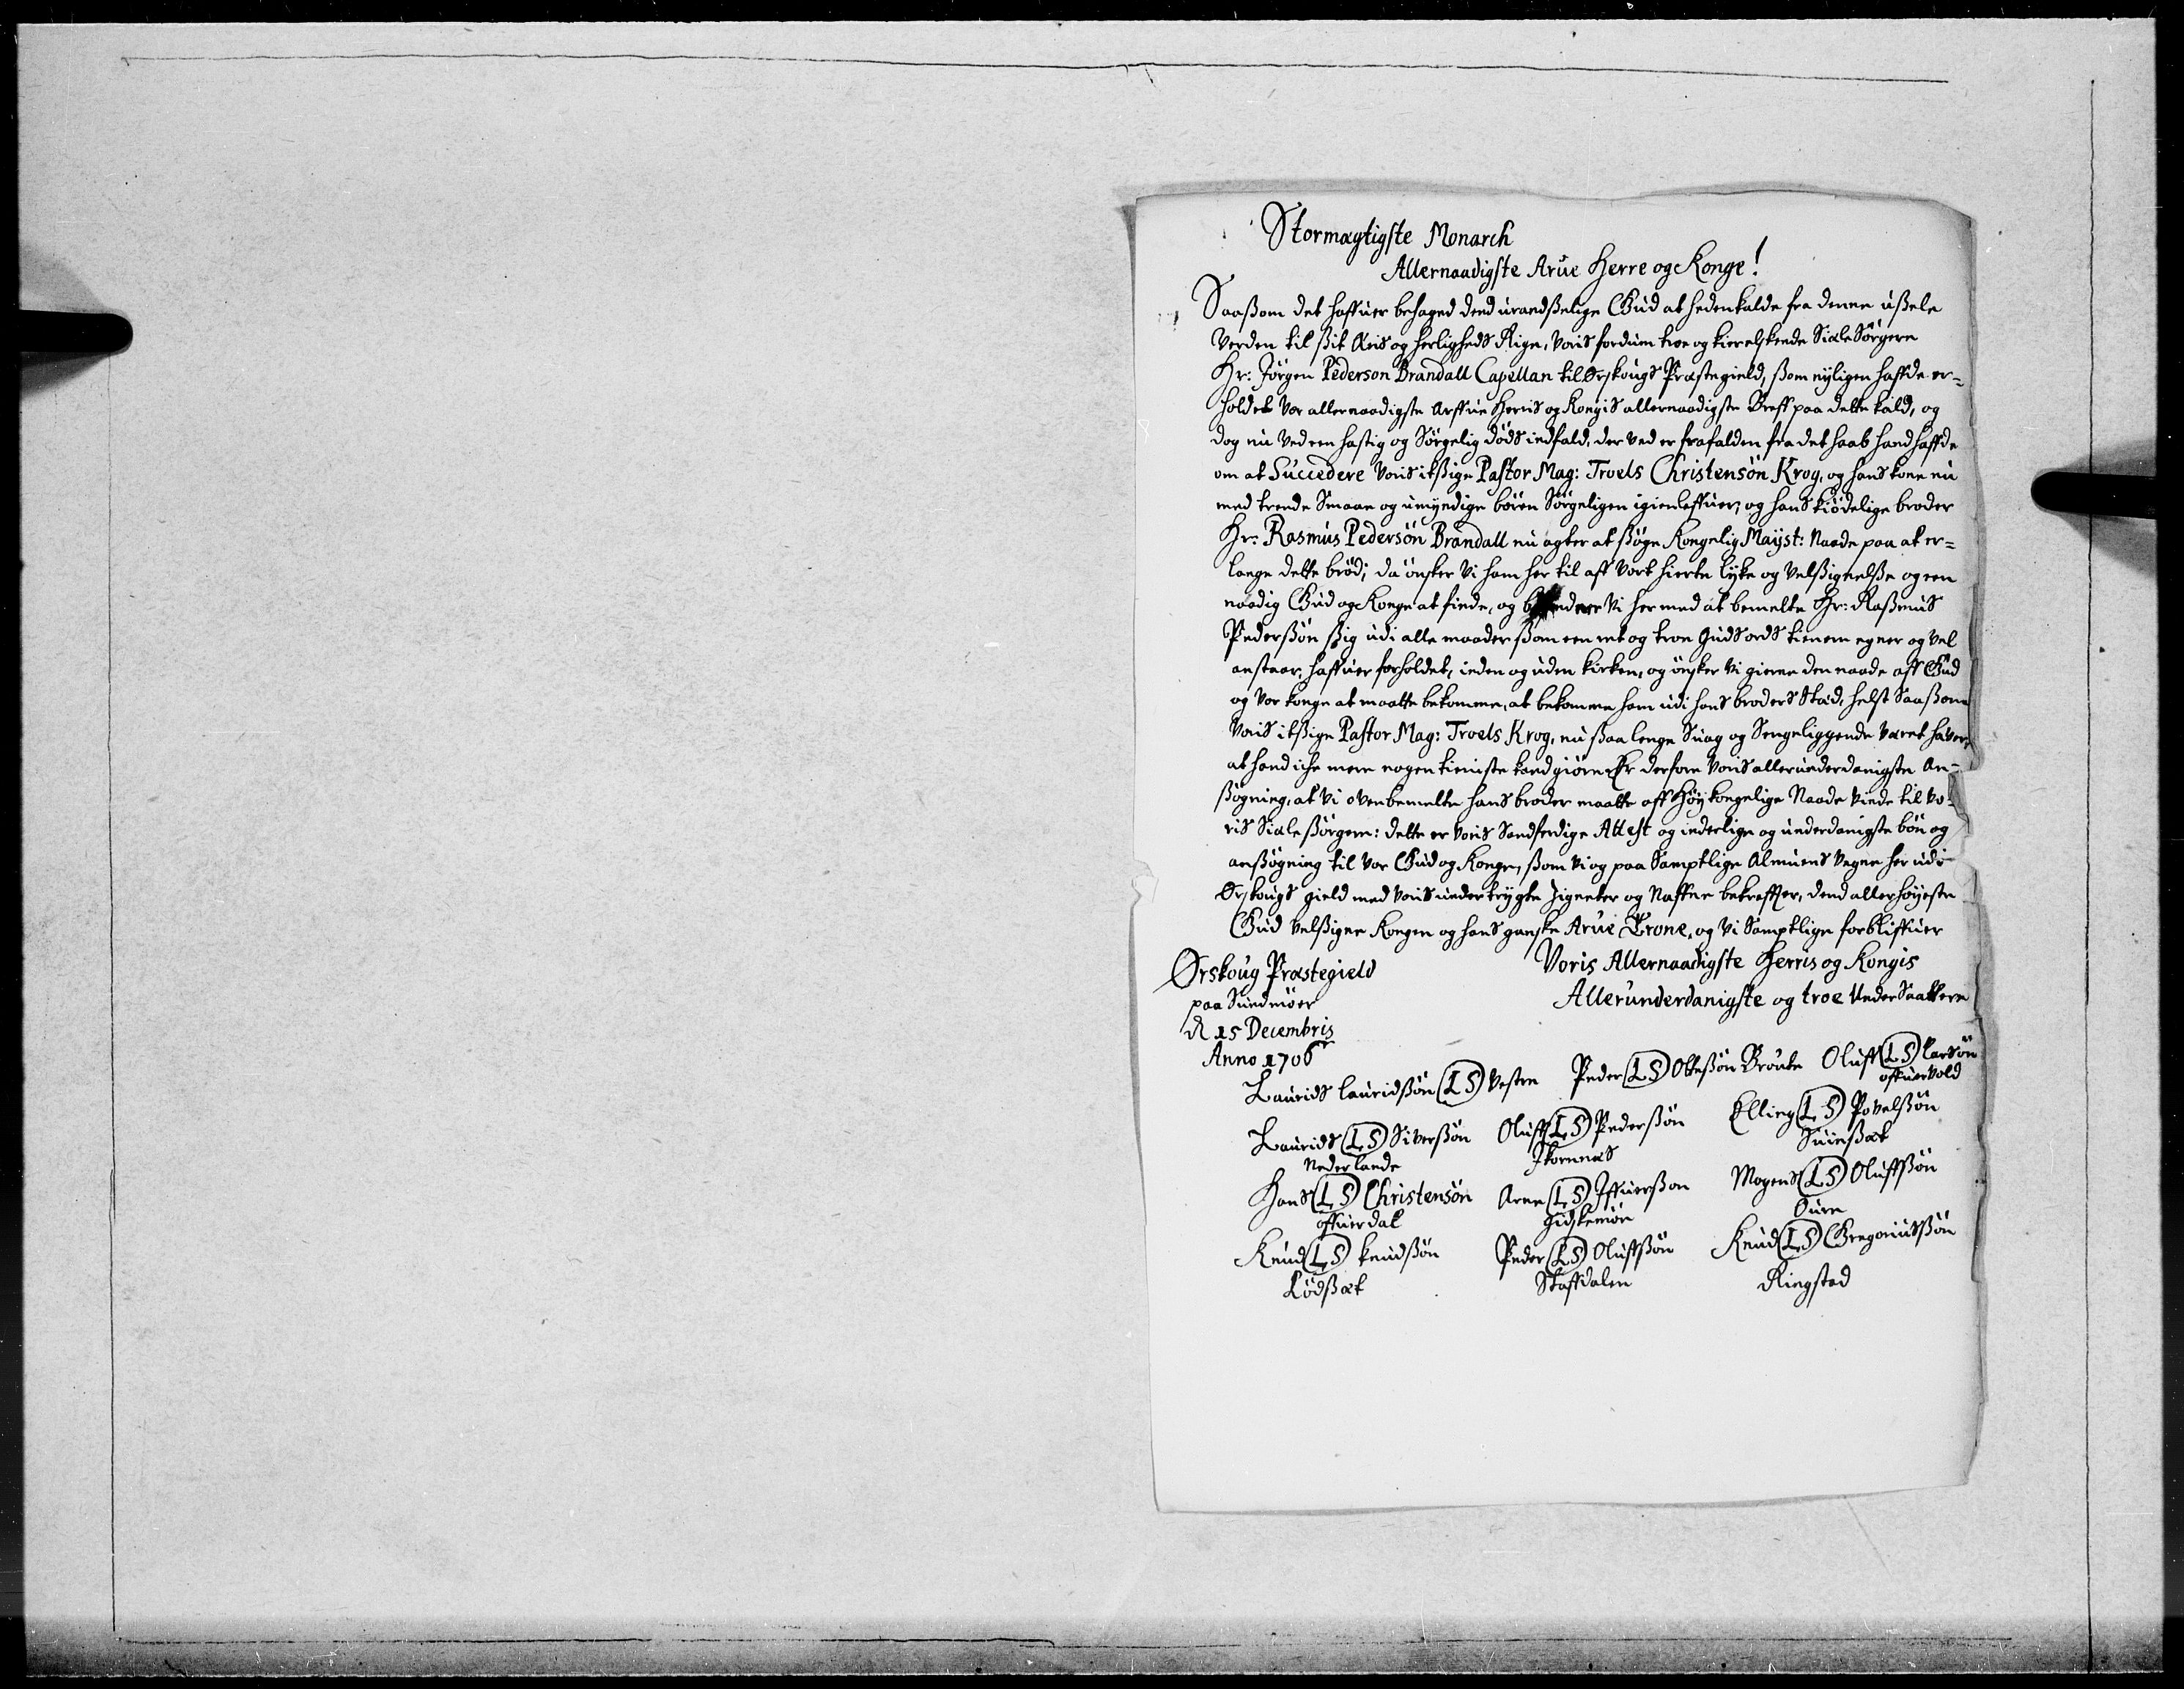 Stormægtigste Monarch
Allernaadigste Arúe Herre og Konge!
Saaßom det haffuer behaged dend urandßelige Gud at hedenkalde fra denne ußele
Verden til ßit Æris og herligheds Rige, voris fordum troe og kierelskende SiæleSørgere
Hr: Jörgen Pederson Brandall Capellan til Ørskougs Præstegield, ßom nÿligen haffde er=
holdet vor allernaadigste Arffue Herris og Kongis allernaadigste Breff paa dette kald, og
dog nu ved een hastig og Sörgelig döds indfald, der ved er frafalden fra det haab hand haffde
om at Succedere voris itßige Pastor Mag: Troels Christensön Krog, og hans kone nu
med trende Smaae og umÿndige börn Sörgeligen igienleffuer, og hans kiödelige broder
Hr: Rasmus Pedersön Brandall nu agter at ßöge Kongelig Maÿst: Naade paa at er=
lange dette bröd; da önsker vi ham her til aff vort hierte lÿke og velßignelße og een
naadig Gud og Konge at finde, og vi her med at bemelte Hr: Raßmus
Pederßön ßig udi alle maader ßom een ret og troe Guds ords tienere egner og vel
anstaar, haffuer forholdet, inden og uden kirken, og önsker vi gierne den naade aff Gud
og vor konge at maatte bekomme, at bekomme ham udi hans broders Stæd, helst Saaßom
voris itßige Pastor Mag: Troels Krog, nu ßaa lenge Suag og Sengeliggende været haver,
at hand iche mere nogen tieniste kand giöre Er derfore voris allerunderdanigste An-
ßögning, at vi ovenbemelte hans broder maatte aff Höÿ kongelige Naade vinde til vo-
ris Siæleßörgere: dette er voris Sandferdige Attest og inderlige og underdanigste bön og
anßögning til vor Gud og Konge, ßom vi og paa Samptlige Almuens vegne her udi
Ørskougs gield med voris undertrÿgte Zigneter og Naffne bekreffter, dend allerhöÿeste
Gud velßigne Kongen og hans ganske Arúe Trone, og vi Samptlige forbliffuer
Ørskoug Præstegield
Voris Allernaadigste Herris og Kongis
paa Sundmöer
Allerunderdanigste og troe UnderSaattere
d 15 Decembris
Anno 1706
Laurids Lauridßön (LS) Vestre Peder (LS) Olleßön Bröute Oluff (LS) Larsön
offuervold
Laurids (LS) Siverßön Oluff (LS) Pederßön Elling (LS) Povelßön
Nederlande Ikornnæs Suinßæt
Hans (LS) Christensön Arne (LS) Iffuerßon Mogens (LS) Oluffßön
offuerdal Gidskemöe Oure
Knud (LS) Knudßön Peder (LS) Oluffßön Knud (LS) Gregoriusßön
Lödßæt Staffdalen Ringstad